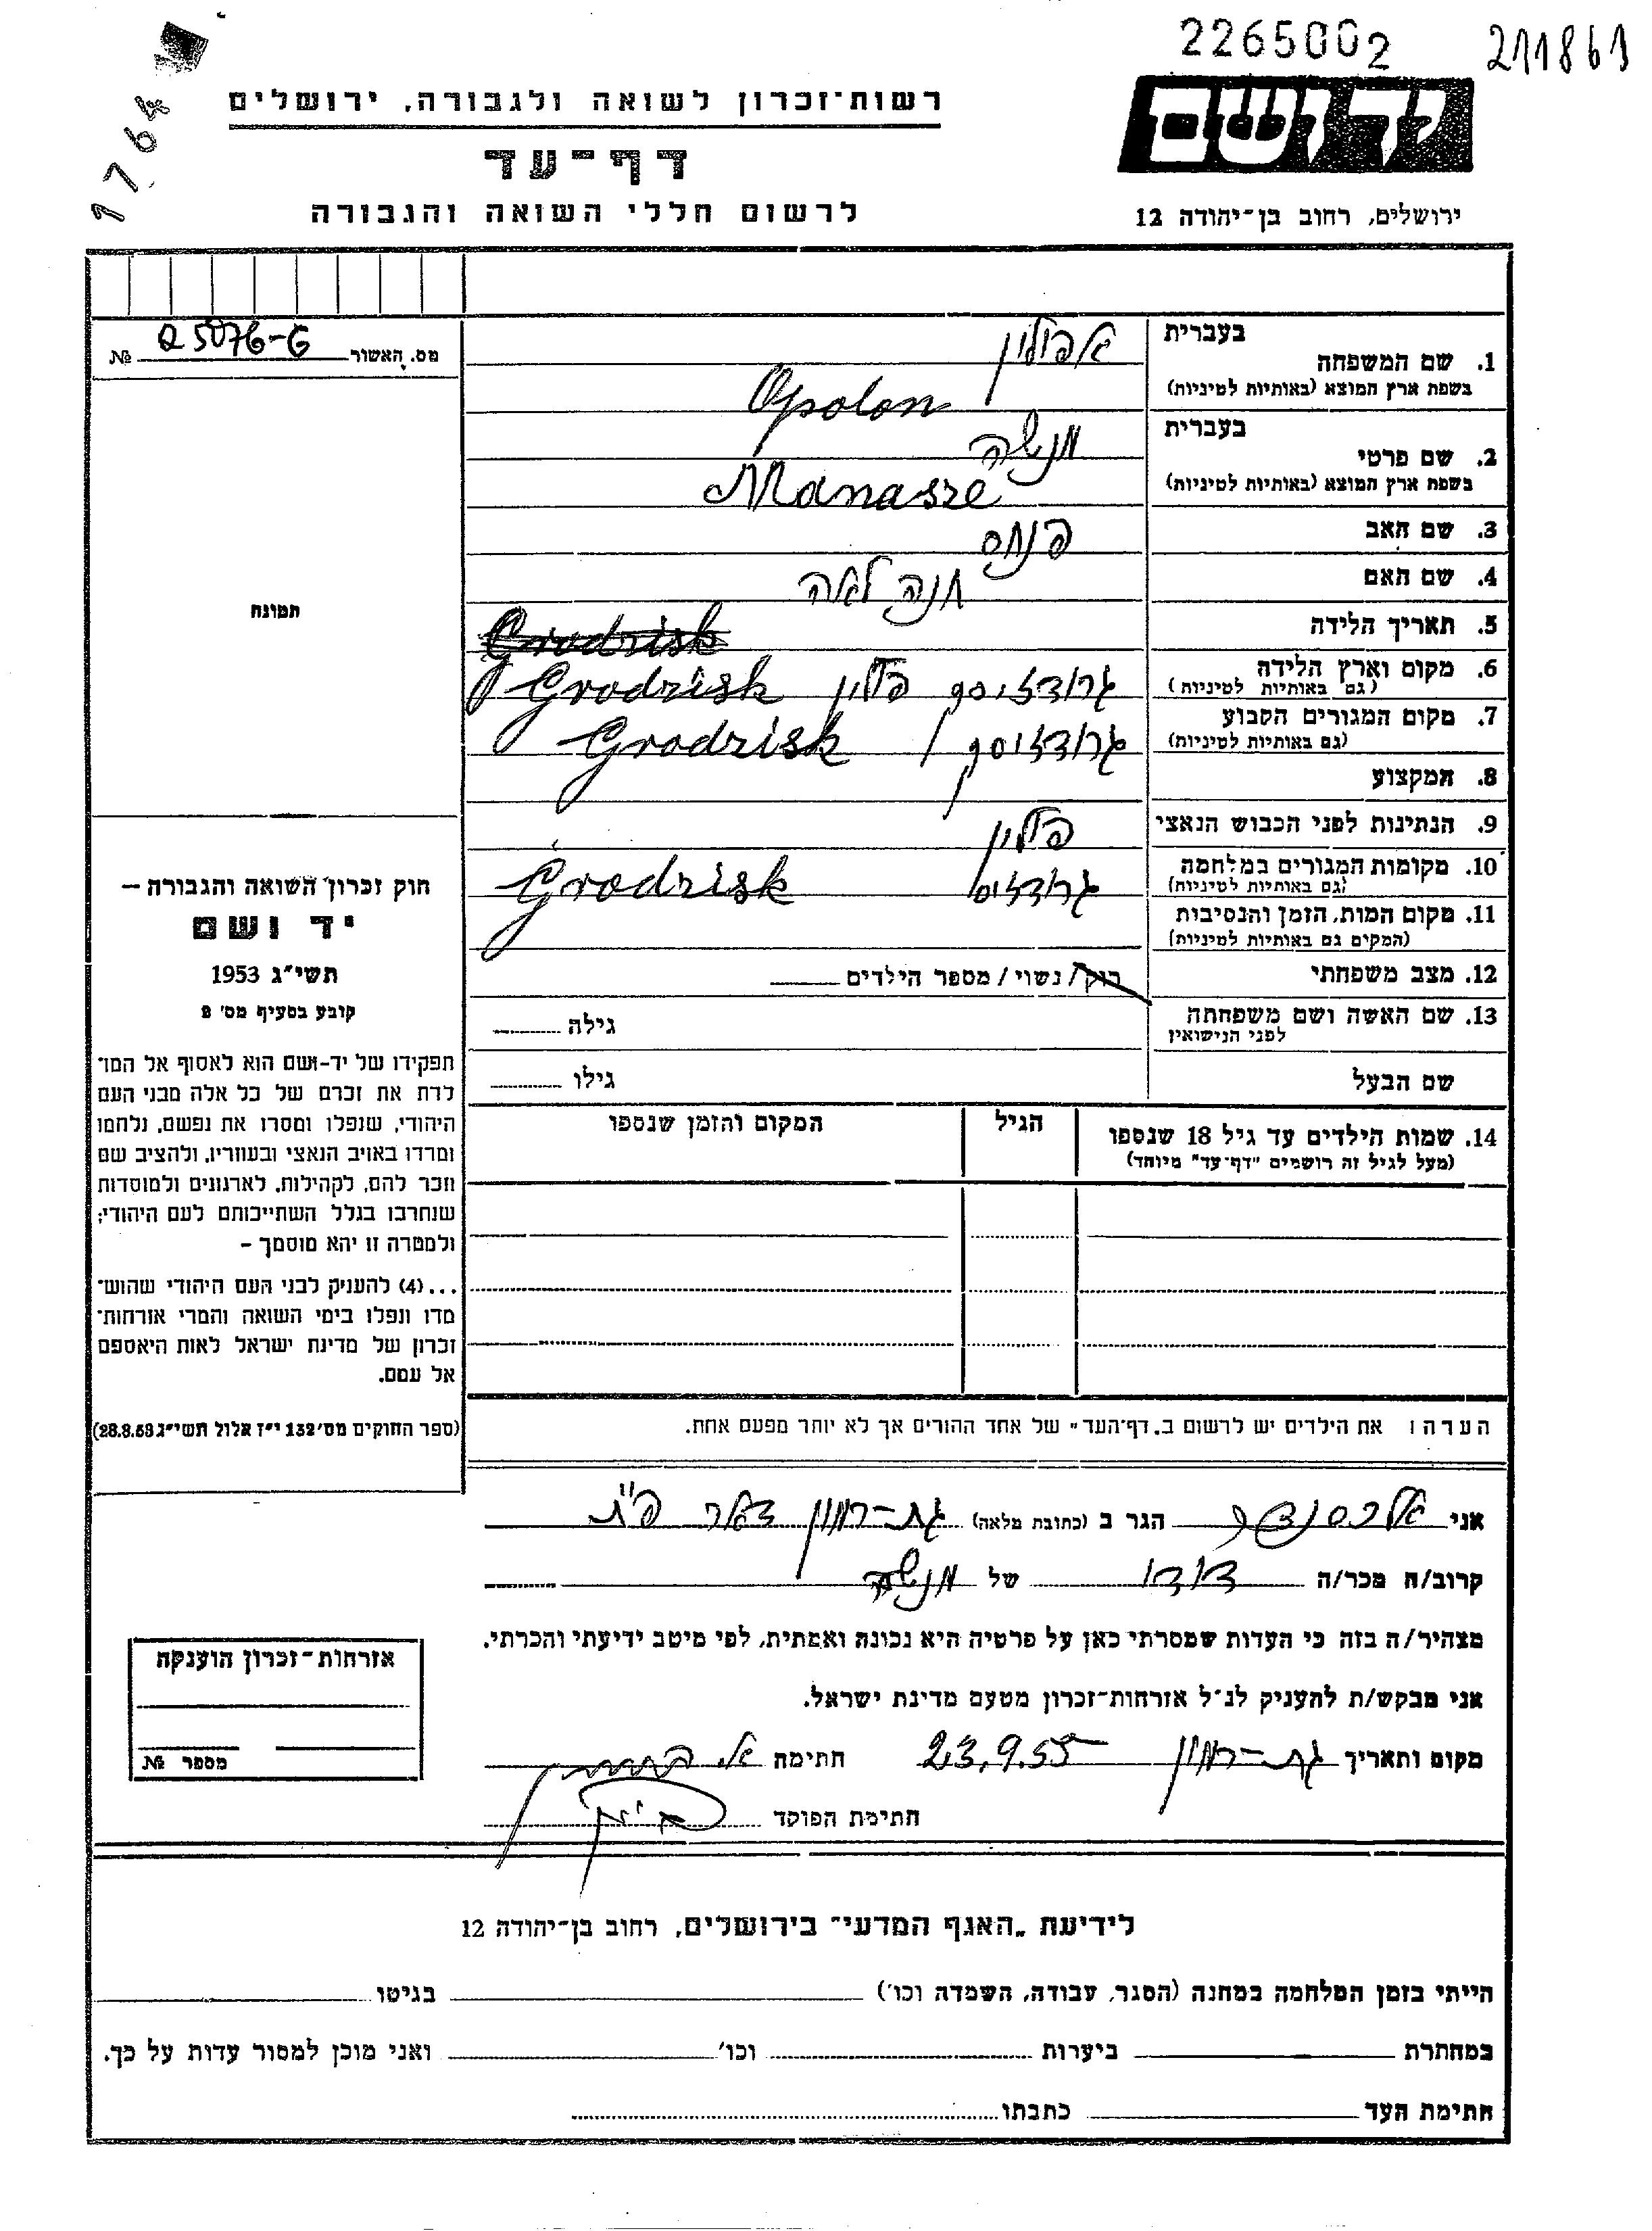 2265002
211861
1764
רשות-זכרון לשואה ולגבורה, ירושלים
יד ושם
דף-עד
לרשום חללי השואה והגבורה
ירושלים, רחוב בן-יהודה 12
מס. האשור № 25076-G
תמונה
חוק זכרון השואה והגבורה –
יד ושם
תשי"ג 1953
קובע בסעיף מס' 2
תפקידו של יד-ושם הוא לאסוף אל המו־
לדת את זכרם של כל אלה מבני העם
היהודי, שנפלו ומסרו את נפשם, נלחמו
ומרדו באויב הנאצי ובעוזריו, ולהציב שם
וזכר להם, לקהילות, לארגונים ולמוסדות
שנחרבו בגלל השתייכותם לעם היהודי;
ולמטרה זו יהא מוסמך –
...(4) להעניק לבני העם היהודי שהוש־
מדו ונפלו בימי השואה והמרי אזרחות־
זכרון של מדינת ישראל לאות היאספם
אל עמם.
(ספר החוקים מס' 132 י"ז אלול תשי"ג 28.8.53)
1. שם המשפחה בעברית אפולון
בשפת ארץ המוצא (באותיות לטיניות) Opolon
2. שם פרטי בעברית מנשה
בשפת ארץ המוצא (באותיות לטיניות) Manasze
3. שם האב פנחס
4. שם האם חנה לאה
5. תאריך הלידה Grodzisk
6. מקום וארץ הלידה גרודזיסק פולין Grodzisk
(גם באותיות לטיניות)
7. מקום המגורים הקבוע גרודזיסק / Grodzisk
(גם באותיות לטיניות)
8. המקצוע
9. הנתינות לפני הכבוש הנאצי פולין
10. מקומות המגורים במלחמה גרודזיסק Grodzisk
(גם באותיות לטיניות)
11. מקום המות, הזמן והנסיבות
(המקום גם באותיות לטיניות)
12. מצב משפחתי רוק / נשוי / מספר הילדים
13. שם האשה ושם משפחתה גילה
לפני הנישואין
שם הבעל גילו
14. שמות הילדים עד גיל 18 שנספו הגיל המקום והזמן שנספו
(מעל לגיל זה רושמים "דף-עד" מיוחד)
הערה: את הילדים יש לרשום ב„דף-העד" של אחד ההורים אך לא יותר מפעם אחת.
אני אלכסנדר הגר ב (כתובת מלאה) גת-רמון דאר פ"ת
קרוב/ה מכר/ה דודו של מנשה
מצהיר/ה בזה כי העדות שמסרתי כאן על פרטיה היא נכונה ואמתית, לפי מיטב ידיעתי והכרתי.
אני מבקש/ת להעניק לנ"ל אזרחות-זכרון מטעם מדינת ישראל.
מקום ותאריך גת-רמון 23.9.55 חתימה
חתימת הפוקד
אזרחות-זכרון הוענקה
מספר №
לידיעת „האגף המדעי" בירושלים, רחוב בן-יהודה 12
הייתי בזמן המלחמה במחנה (הסגר, עבודה, השמדה וכו') בגיטו
במחתרת ביערות וכו' ואני מוכן למסור עדות על כך.
חתימת העד כתבתו